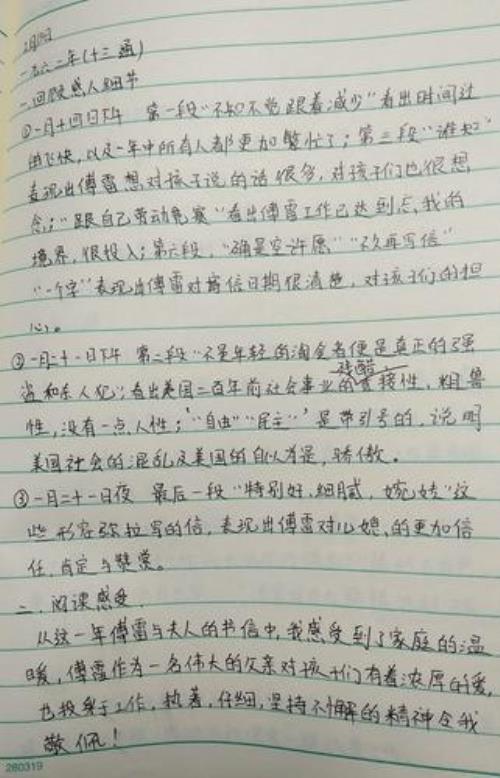 一九六二年(十三通)
一.回顾感人细节
①一月十四日下午 第一段"不知不觉跟着减少"看出时间过
得飞快,以及一年中所有人都更加繁忙了;第三段"谁知"
表现出傅雷想对孩子说的话很多,对孩子们也很想
念;"跟自己劳动竞赛"看出傅雷工作已达到忘我的
境界,很投入;第六段,"确是空许愿""不久再写信"
"一个字"表现出傅雷对寄信日期很清楚,对孩子们的担
心。
②一月二十一日下午 第二段"不是年轻的淘金者便是真正的强
盗和杀人犯"看出美国二百年前社会事业的残酷性,粗兽
性,没有一点人性;"自由""民主"是带引号的,说明
美国社会的混乱及美国的自以为是,骄傲。
③一月二十一日夜 最后一段"特别好,细腻,婉转"这
些形容弥拉写的信,表现出傅雷对儿媳的更加信
任,肯定与赞赏。
二.阅读感受
从这一年傅雷与夫人的书信中,我感受到了家庭的温
暖,傅雷作为一名伟大的父亲对孩子们有着浓厚的爱,
也投身于工作,执着,仔细,坚持不懈的精神令我
敬佩!
280319